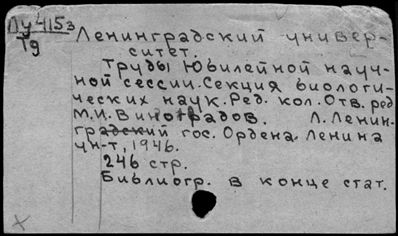 Лу 415з
Тд
Ленинградский универ-
ситет.
Труды Юбилейной науч-
ной сессии. Секция биологи-
ческих наук. Ред. кол. Отв. ред
М.И. Виноградов. Л. Ленин-
градский гос. Ордена Ленина
ун-т, 1946.
246 стр.
Библиогр. в конце стат.
х